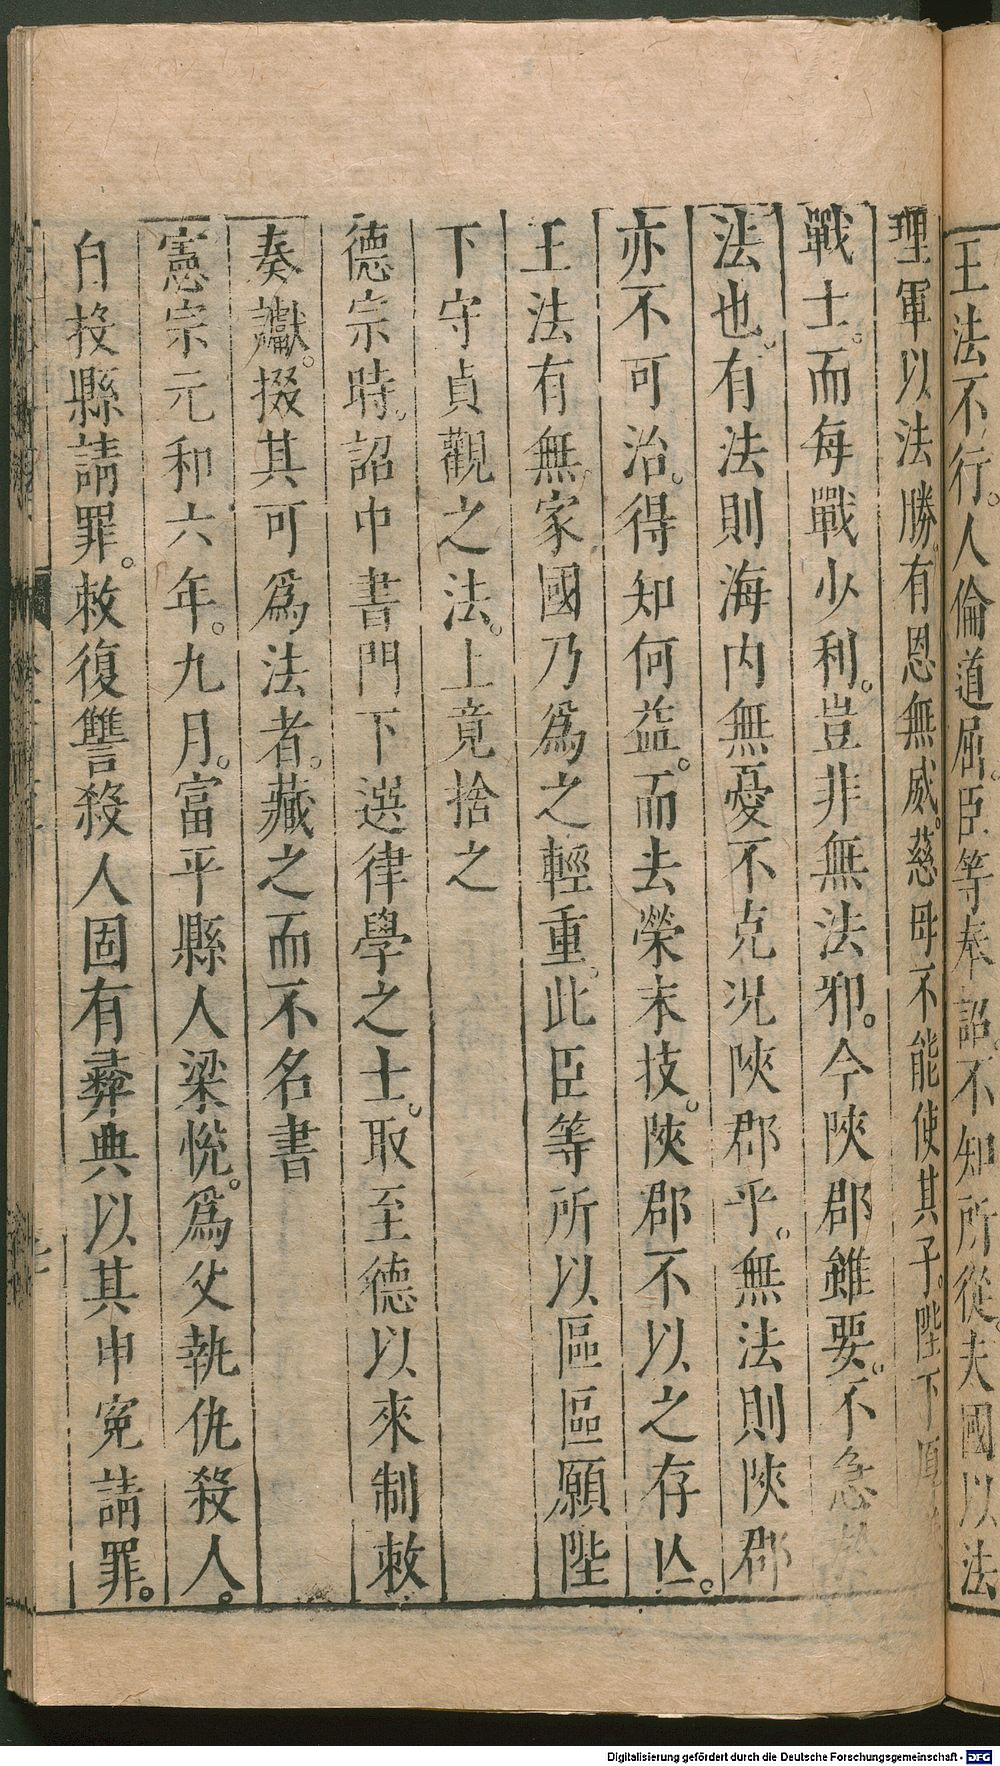 王法不行。人倫道屈。臣等奉詔。不知所從。夫國以法
理軍以法勝。有恩無威。慈母不能使其子。陛下厚
戰士。而每戰少利。豈非無法邪。今陝郡雖要。不急
法也。有法則海內無憂不克况陝郡乎。無法則陝郡
亦不可治。得知何益。而去榮末技。陝郡不以之存亾。
王法有無。家國乃爲之輕重。此臣等所以區區願陛
下守貞觀之法。上竟捨之
德宗時。詔中書門下選律學之士。取至德以來制敕
奏讞。掇其可爲法者。藏之而不名書
憲宗元和六年。九月。富平縣人梁悅。爲父執仇殺人。
自投縣請罪。敕復讐殺人固有彞典以其申寃請罪。
Digitalisierung gefördert durch die Deutsche Forschungsgemeinschaft - DFG